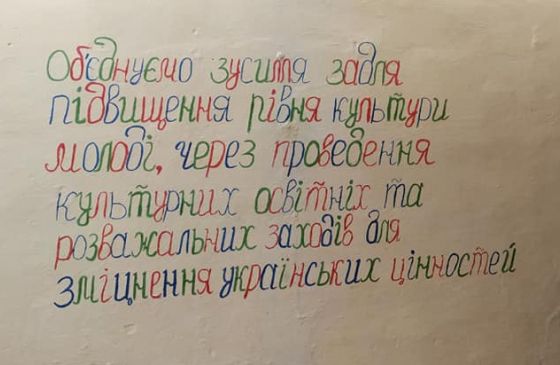 Об'єднуємо зусилля задля
підвищення рівня культури
молоді, через проведення
культурних освітніх та
розважальних заходів для
зміцнення українських цінностей